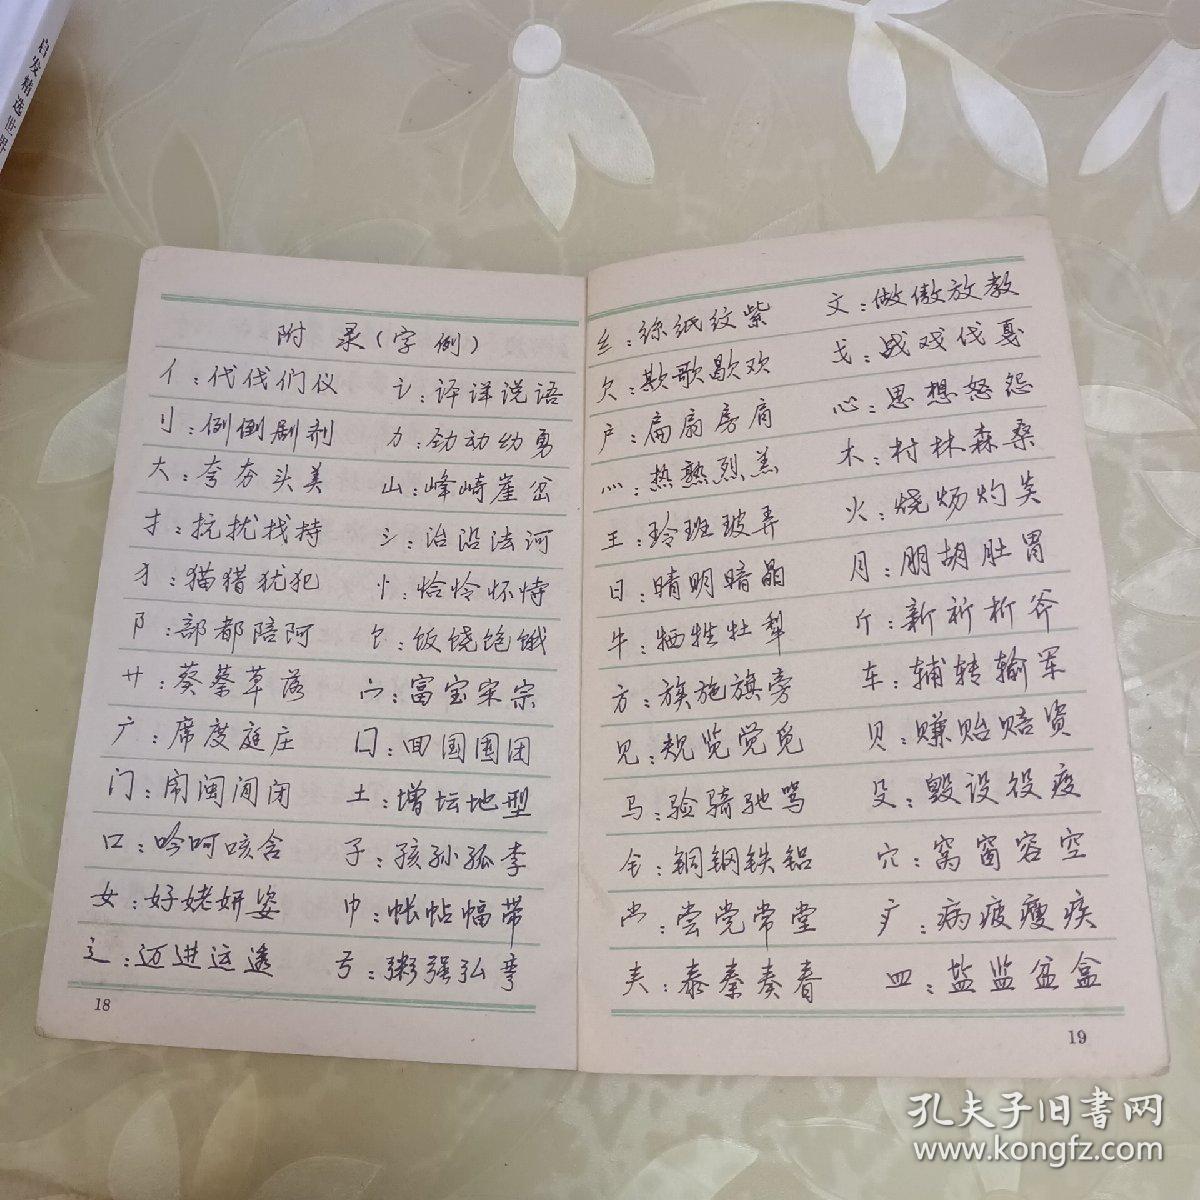 启发精选世界
附 录(字例)
亻:代伐们仪 讠:译详说语
刂:例倒剧剂 力:劲动幼勇
大:夸夯头美 山:峰崎崖岔
扌:抗扰找持 氵:治沿法河
犭:猫猎犹犯 忄:恰怜怀恃
阝:部都陪阿 饣:饭饶饱饿
艹:葵蔡草落 宀:富宝宋宗
广:席度庭庄 囗:回国围团
门:闹闽闻闭 土:增坛地型
口:吟呵咳含 子:孩孙孤李
女:好姥妍姿 巾:帐帖幅带
辶:迈进运透 弓:粥强弘弯
18
纟:综纸纹紫 文:做傲放教
欠:欺歌歇欢 戈:战戏伐戛
户:扁扇房肩 心:思想怒怨
灬:热熟烈羔 木:村林森桑
王:玲班玻弄 火:烧炀灼炭
日:晴明暗晶 月:朋胡肚胃
牛:牺牲牡犁 斤:新祈析斧
方:族施旗旁 车:辅转输军
见:规览觉觅 贝:赚贻赔资
马:验骑驰骂 殳:毁设役疫
钅:铜钢铁铝 穴:窝窗容空
尚:尝党常堂 疒:病疲瘦疾
𡗗:泰秦奏春 皿:盐监盆盒
19
孔夫子旧书网
www.kongfz.com